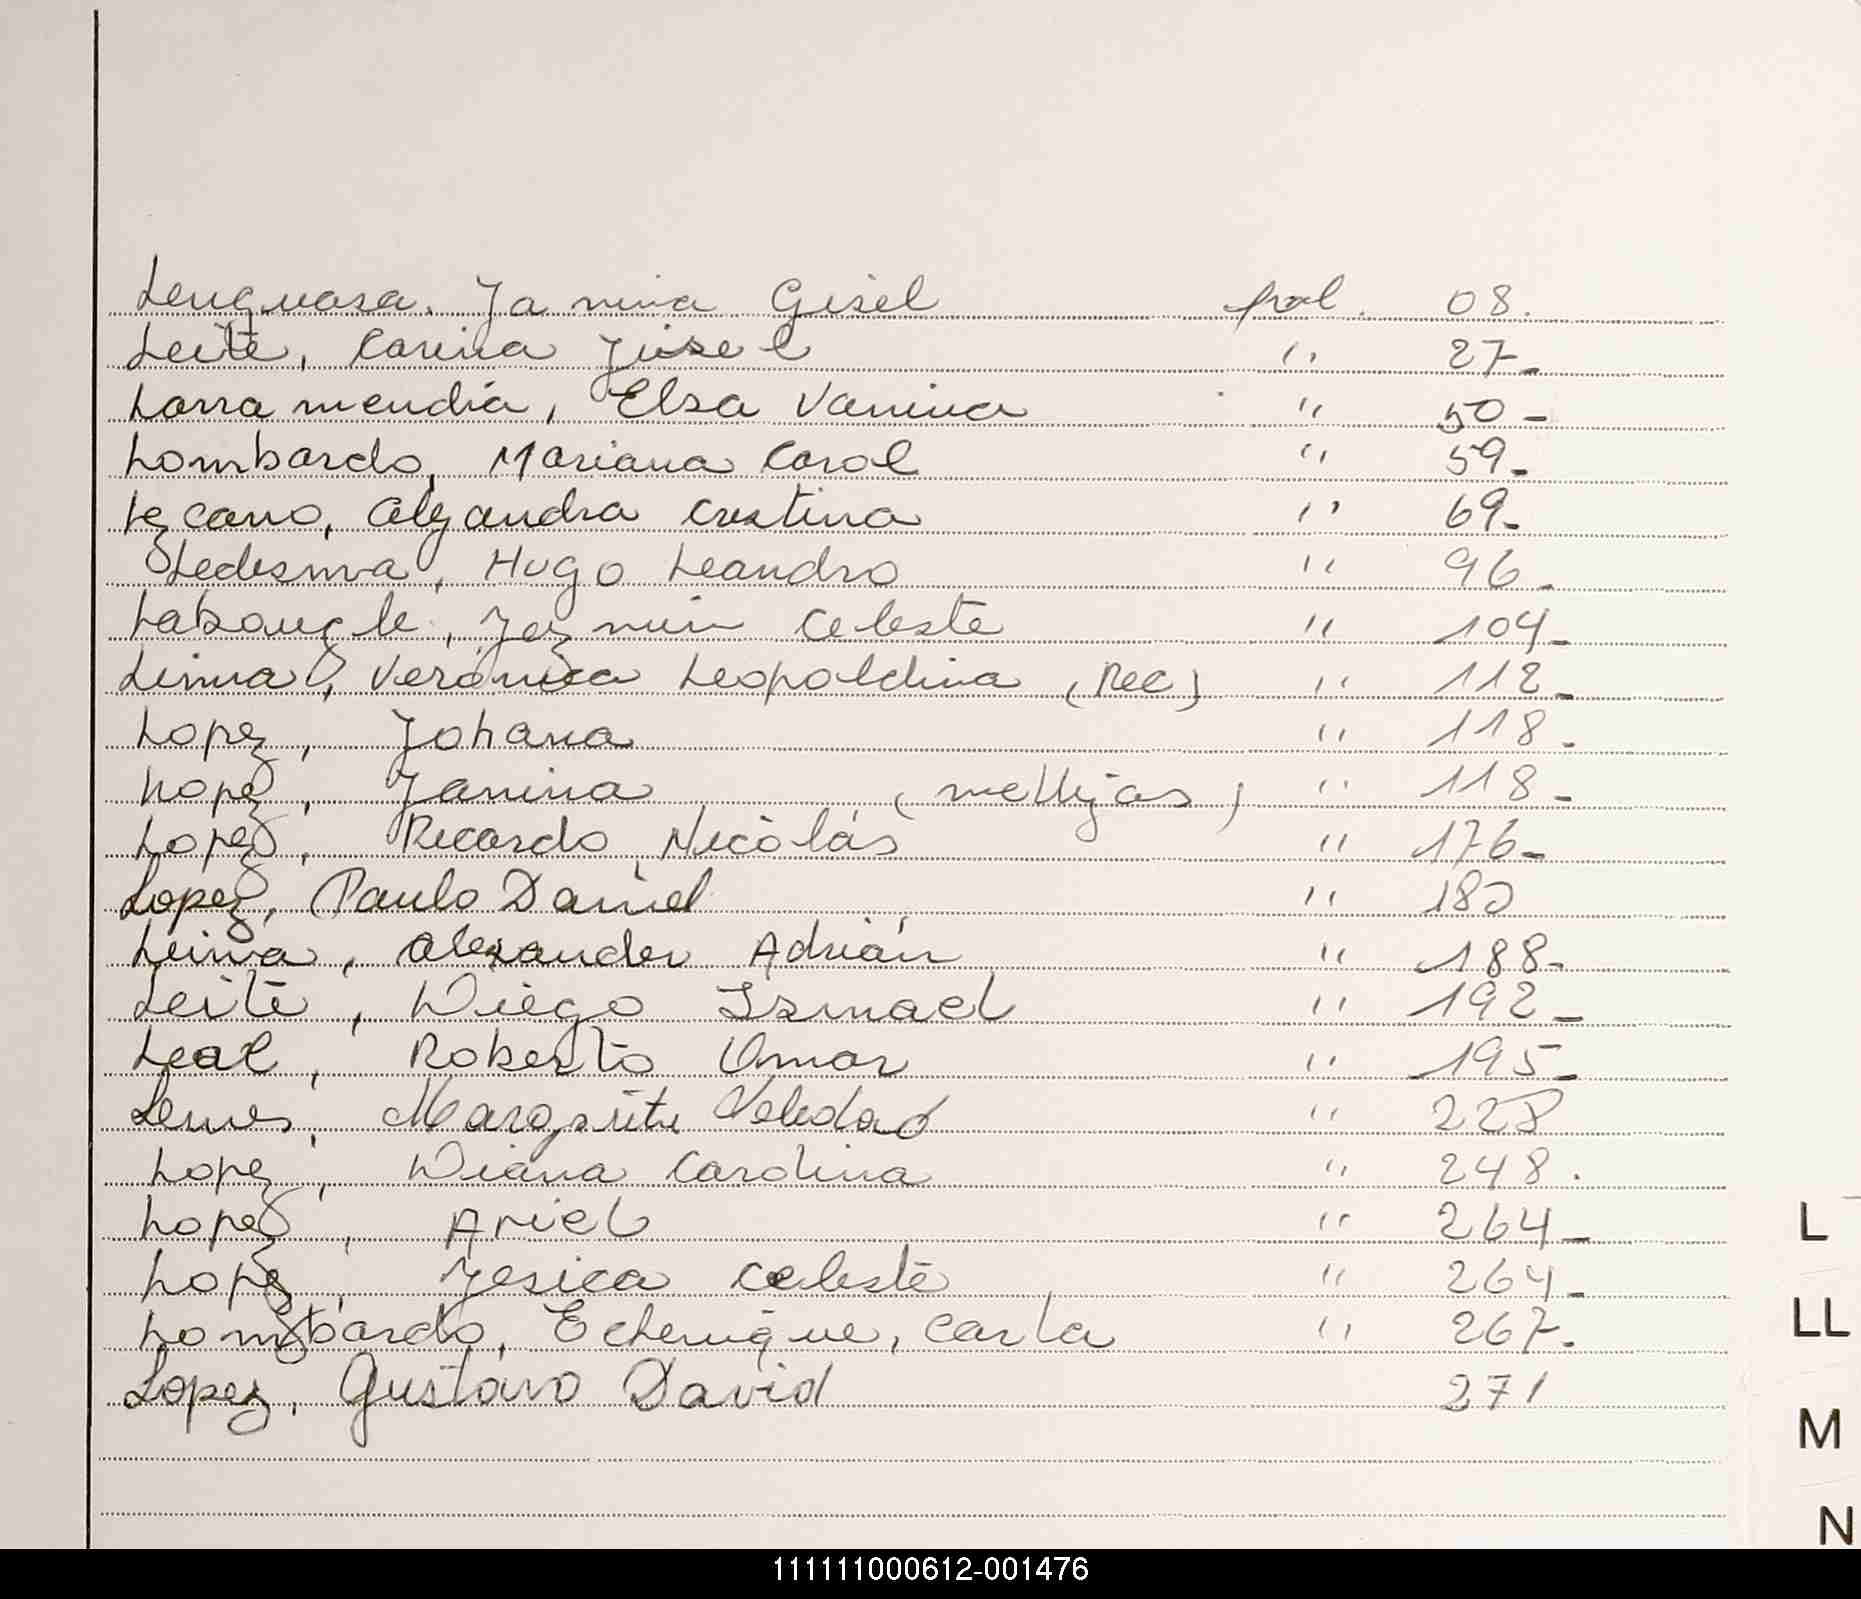 Lenguasa, Janina Gisel fol. 08.
Leite, Carina Jisel " 27-
Larramendia, Elsa Vanina " 50-
Lombardo, Mariana Carol " 59-
Lezcano, Alejandra Cristina " 69-
Ledesma, Hugo Leandro " 96-
Labougle, Jazmin Celeste " 104-
Lima, Verónica Leopoldina (Rec) " 112-
Lopez, Johana " 118-
Lopez, Janina (mellijas) " 118-
Lopez, Ricardo Nicolás " 176-
Lopez, Paulo Daniel " 180
Leiva, Alexander Adrián " 188-
Leite, Diego Ismael " 192-
Leal, Roberto Omar " 195-
Lemes, Margarita Soledad " 228
Lopez, Diana Carolina " 248.
Lopez, Ariel " 264-
Lopez, Jesica Celeste " 264-
Lombardo, Echenique, Carla " 267.
Lopez, Gustavo David 271
L
LL
M
N
111111000612-001476